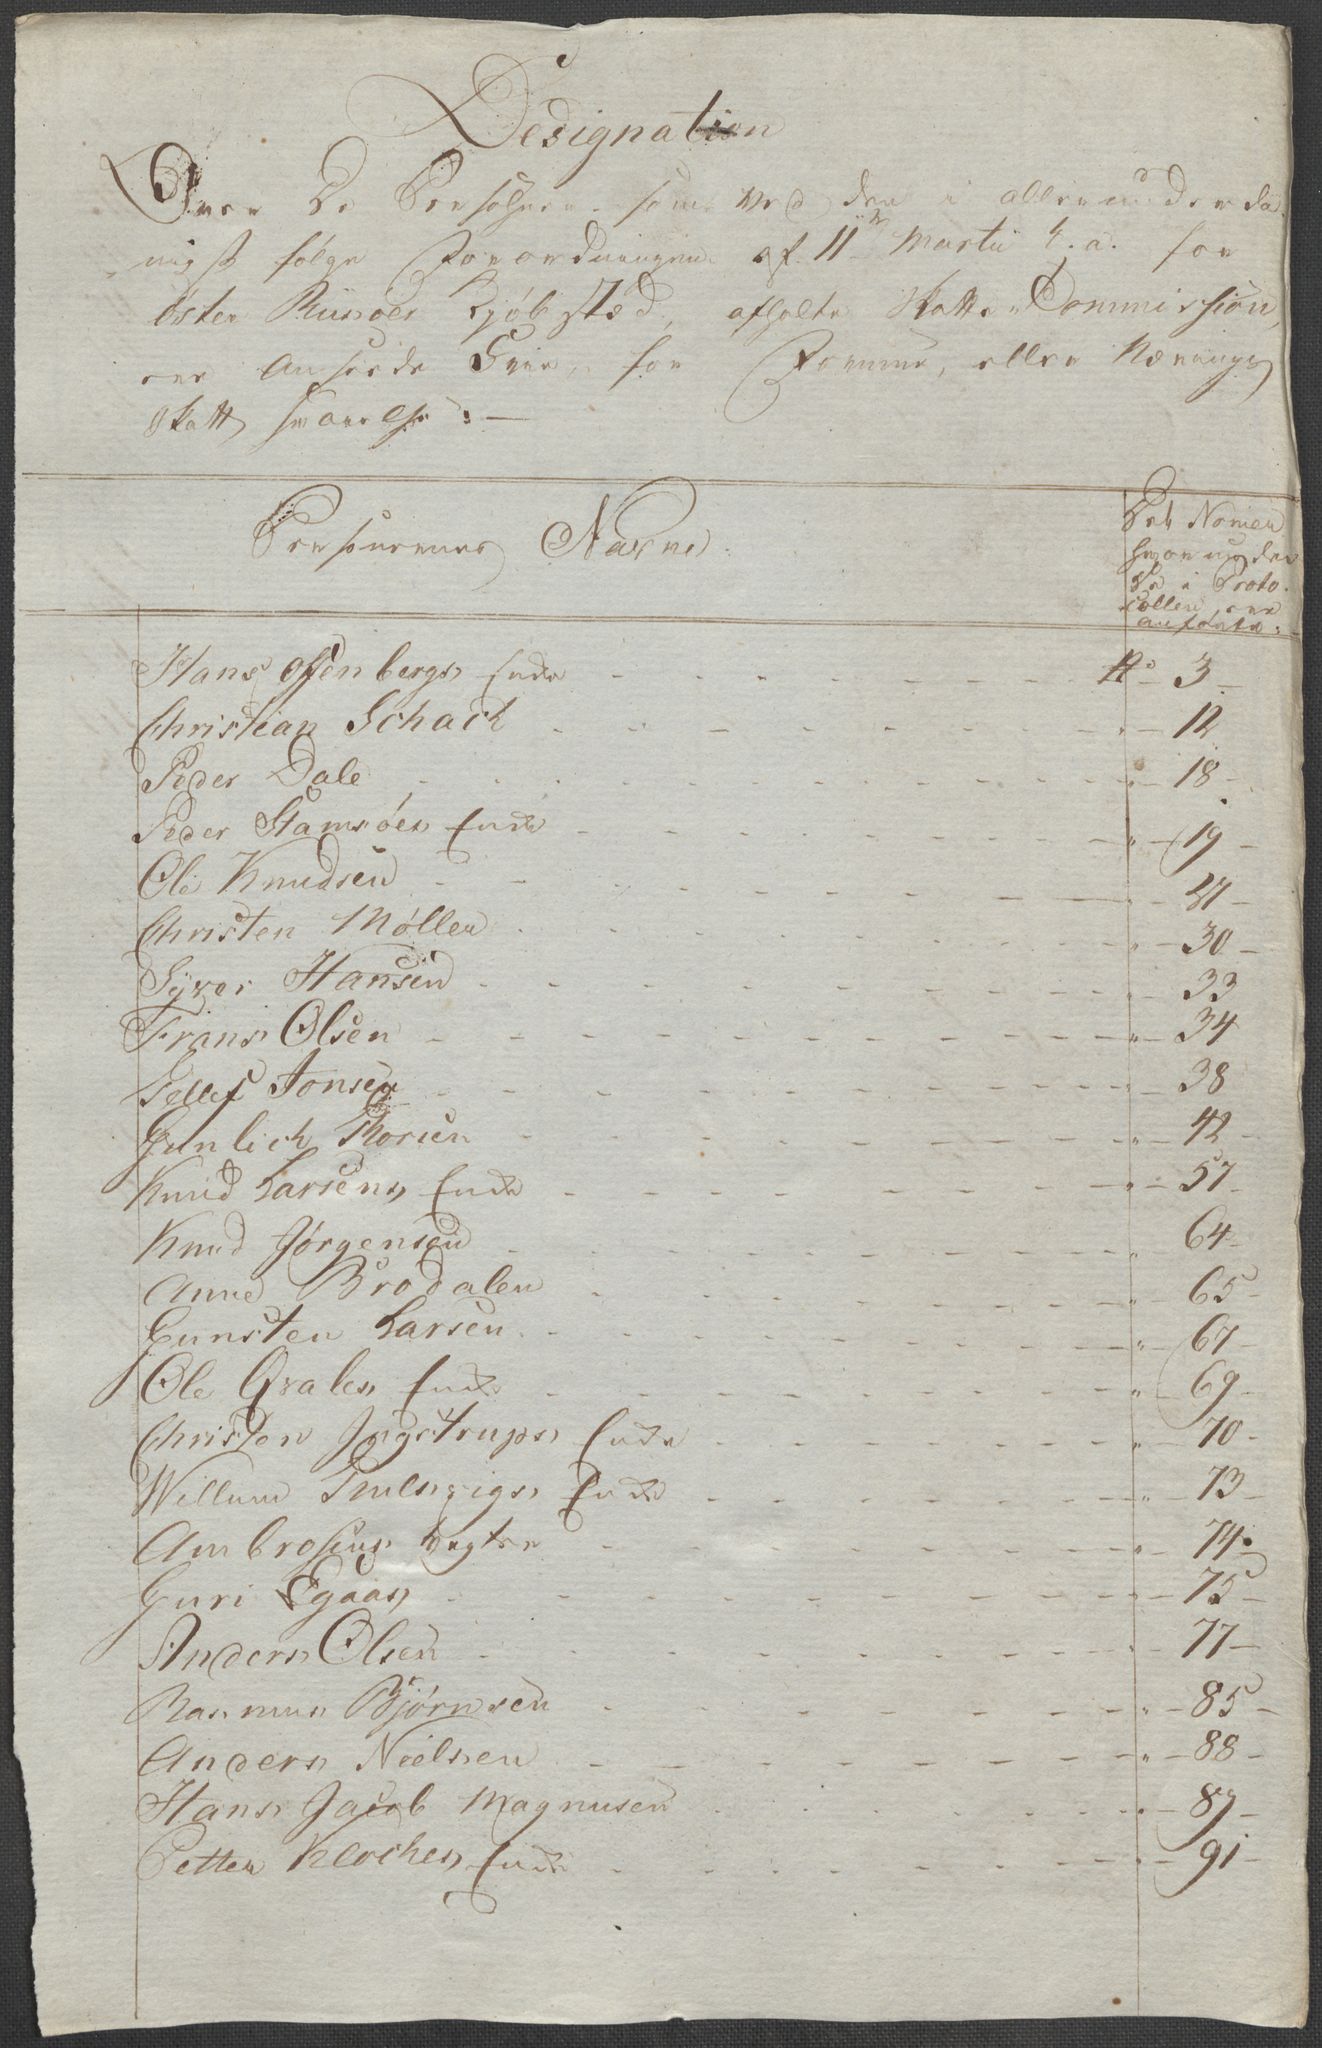 Designation
Over De Personer som ved den i allerunderda-
nigst følge Forordningen af 11te Martii h. a. for
Øster Riisøer Kjøbsted, afholte Skatte Commission,
ere anseede frie, for Formue, eller Nærings
Skatt svarelse: —
Personernes Navne
Det Nomer
hvorunder
De i Proto-
collen ere
anførte:
Hans Ofenbergs Enke No 3
Christian Schach 12
Peder Dale 18
Peder Stamsøes Enke 19
Ole Knudsen
Christen Møller 30
Syver Hansen 33
Frans Olsen 34
Tellef Jonsen 38
Gunlich Thorsen 42
Knud Larsens Enke 57
Knud Jørgensen 64
Anne Brodalen 65
Gunsten Larsen 67
Ole Qvales Enke 69
Christen Ingstrups Enke 70
Willum Enke 73
Ambrosius Vegter 74
Guri Egaas 75
Anders Olsen 77
Rasmus Bjørnsen 85
Anders Nielsen 88
Hans Jacob Magnusen 89
Petter Klockes Enke 91